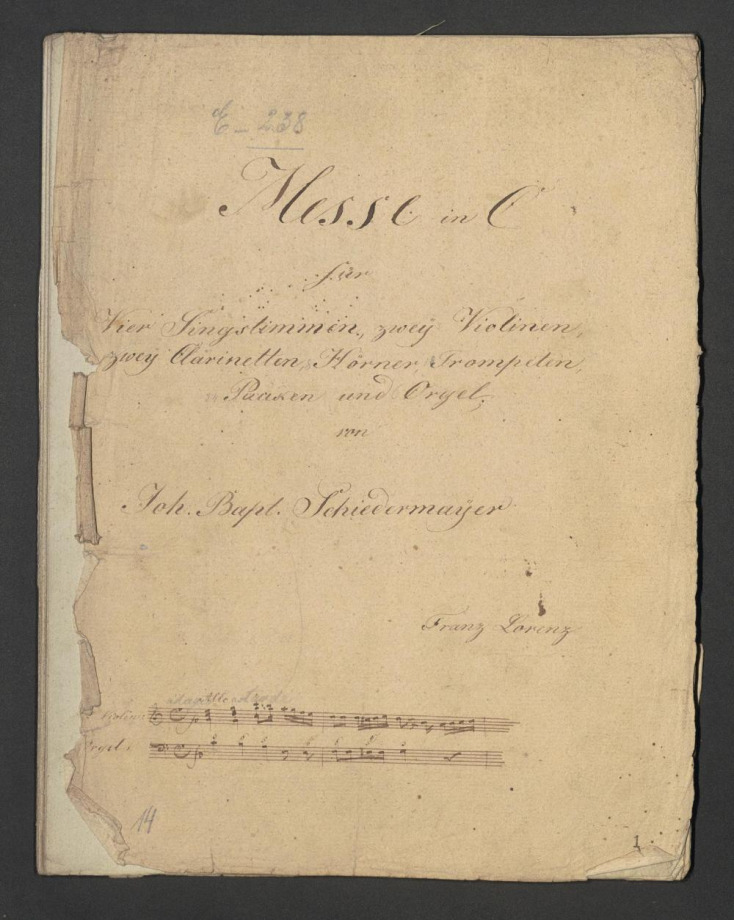 E-238
Messe in C
für
Vier Singstimmen, zwey Violinen,
zwey Clarinetten, Hörner, Trompeten,
Pauken und Orgel,
von
Joh. Bapt. Schiedermayer
Franz Lorenz
Violino
Orgel
14
1